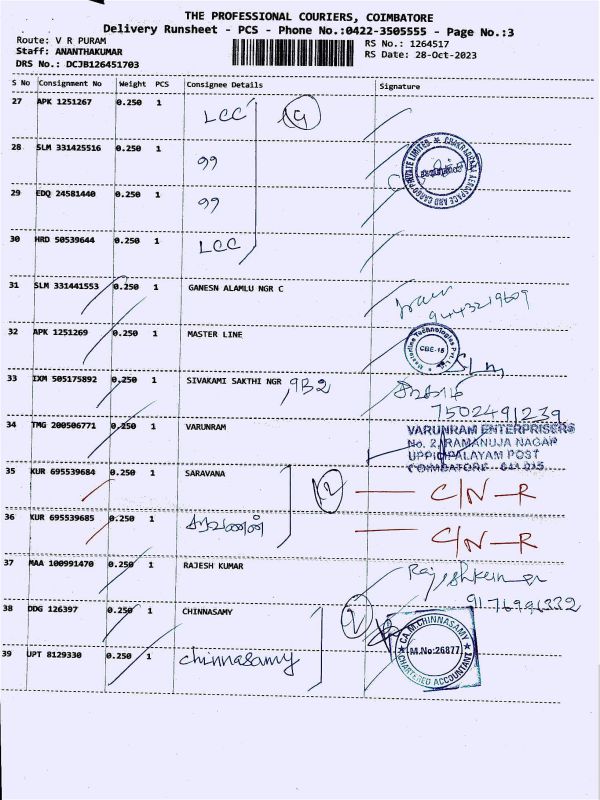 THE PROFESSIONAL COURIERS, COIMBATORE
Delivery Runsheet - PCS - Phone No.:0422-3505555 - Page No.:3
Route: V R PURAM RS No.: 1264517
Staff: ANANTHAKUMAR RS Date: 28-Oct-2023
DRS No.: DCJB126451703
S No Consignment No Weight PCS Consignee Details Signature
27 APK 1251267 0.250 1 LCC
28 SLM 331425516 0.250 1 99
29 EDQ 24581440 0.250 1 99
30 HRD 50539644 0.250 1 LCC
CHAKRADHARA AEROSPACE AND CARGO PRIVATE LIMITED
31 SLM 331441553 0.250 1 GANESN ALAMLU NGR C
9443219609
32 APK 1251269 0.250 1 MASTER LINE
Technologies Pvt. CBE-15
33 IXM 505175892 0.250 1 SIVAKAMI SAKTHI NGR , 9B2
7502491239
34 TMG 200506771 0.250 1 VARUNRAM
VARUNRAM ENTERPRISERS
No. 2, RAMANUJA NAGAR
UPPILIPALAYAM POST
COIMBATORE - 641 015
35 KUR 695539684 0.250 1 SARAVANA C/N-R
36 KUR 695539685 0.250 1 சரவணன் C/N-R
37 MAA 100991470 0.250 1 RAJESH KUMAR Rajeshkumar
38 DDG 126397 0.250 1 CHINNASAMY
39 UPT 8129330 0.250 1 chinnasamy
CA.M.CHINNASAMY
M.No:26877
CHARTERED ACCOUNTANT